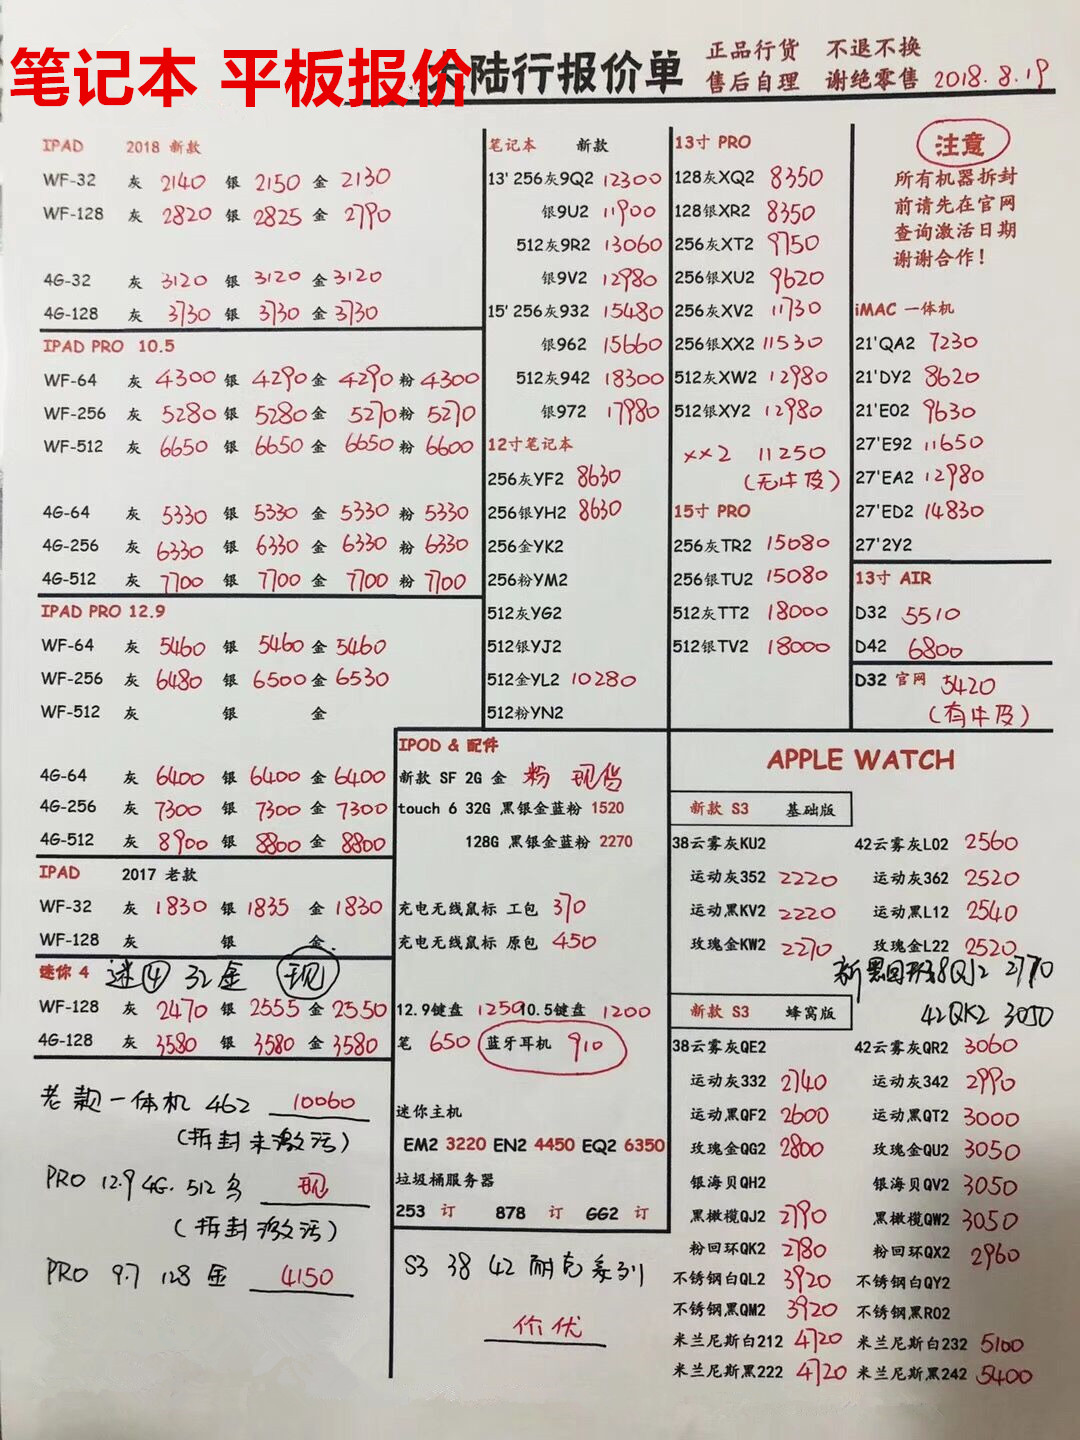 笔记本 平板报价
大陆行报价单
正品行货 不退不换
售后自理 谢绝零售 2018.8.19
IPAD 2018 新款
WF-32 灰 2140 银 2150 金 2130
WF-128 灰 2820 银 2825 金 2790
4G-32 灰 3120 银 3120 金 3120
4G-128 灰 3730 银 3730 金 3730
IPAD PRO 10.5
WF-64 灰 4300 银 4290 金 4290 粉 4300
WF-256 灰 5280 银 5280 金 5270 粉 5270
WF-512 灰 6650 银 6650 金 6650 粉 6600
4G-64 灰 5330 银 5330 金 5330 粉 5330
4G-256 灰 6330 银 6330 金 6330 粉 6330
4G-512 灰 7700 银 7700 金 7700 粉 7700
IPAD PRO 12.9
WF-64 灰 5460 银 5460 金 5460
WF-256 灰 6480 银 6500 金 6530
WF-512 灰 银 金
4G-64 灰 6400 银 6400 金 6400
4G-256 灰 7300 银 7300 金 7300
4G-512 灰 8900 银 8800 金 8800
IPAD 2017 老款
WF-32 灰 1830 银 1835 金 1830
WF-128 灰 银 金
迷你 4 迷④ 32金 现
WF-128 灰 2470 银 2555 金 2550
4G-128 灰 3580 银 3580 金 3580
老款一体机 462 10060
(拆封未激活)
PRO 12.9 4G. 512 鸟 现
(拆封激活)
PRO 9.7 128 金 4150
笔记本 新款
13' 256灰9Q2 12300
银9U2 11900
512灰9R2 13060
银9V2 12980
15' 256灰932 15480
银962 15660
512灰942 18300
银972 17980
12寸笔记本
256灰YF2 8630
256银YH2 8630
256金YK2
256粉YM2
512灰YG2
512银YJ2
512金YL2 10280
512粉YN2
13寸 PRO
128灰XQ2 8350
128银XR2 8350
256灰XT2 9750
256银XU2 9620
256灰XV2 11730
256银XX2 11530
512灰XW2 12980
512银XY2 12980
XX2 11250
(无牛皮)
15寸 PRO
256灰TR2 15080
256银TU2 15080
512灰TT2 18000
512银TV2 18000
注意
所有机器拆封
前请先在官网
查询激活日期
谢谢合作!
iMAC 一体机
21'QA2 7230
21'DY2 8620
21'E02 9630
27'E92 11650
27'EA2 12980
27'ED2 14830
27'2Y2
13寸 AIR
D32 5510
D42 6800
D32 官网 5420
(有牛皮)
IPOD & 配件
新款 SF 2G 金 粉 现货
touch 6 32G 黑银金蓝粉 1520
128G 黑银金蓝粉 2270
充电无线鼠标 工包 370
充电无线鼠标 原包 450
12.9键盘 1250 10.5键盘 1200
笔 650 蓝牙耳机 910
迷你主机
EM2 3220 EN2 4450 EQ2 6350
垃圾桶服务器
253 订 878 订 GG2 订
S3 38 42 耐克系列
价优
APPLE WATCH
新款 S3 基础版
38云雾灰KU2 42云雾灰L02 2560
运动灰352 2220 运动灰362 2520
运动黑KV2 2220 运动黑L12 2540
玫瑰金KW2 2270 玫瑰金L22 2520
新黑回环38QJ2 2770
42QK2 3050
新款 S3 蜂窝版
38云雾灰QE2 42云雾灰QR2 3060
运动灰332 2740 运动灰342 2990
运动黑QF2 2600 运动黑QT2 3000
玫瑰金QG2 2800 玫瑰金QU2 3050
银海贝QH2 银海贝QV2 3050
黑橄榄QJ2 2790 黑橄榄QW2 3050
粉回环QK2 2780 粉回环QX2 2960
不锈钢白QL2 3920 不锈钢白QY2
不锈钢黑QM2 3920 不锈钢黑R02
米兰尼斯白212 4720 米兰尼斯白232 5100
米兰尼斯黑222 4720 米兰尼斯黑242 5400